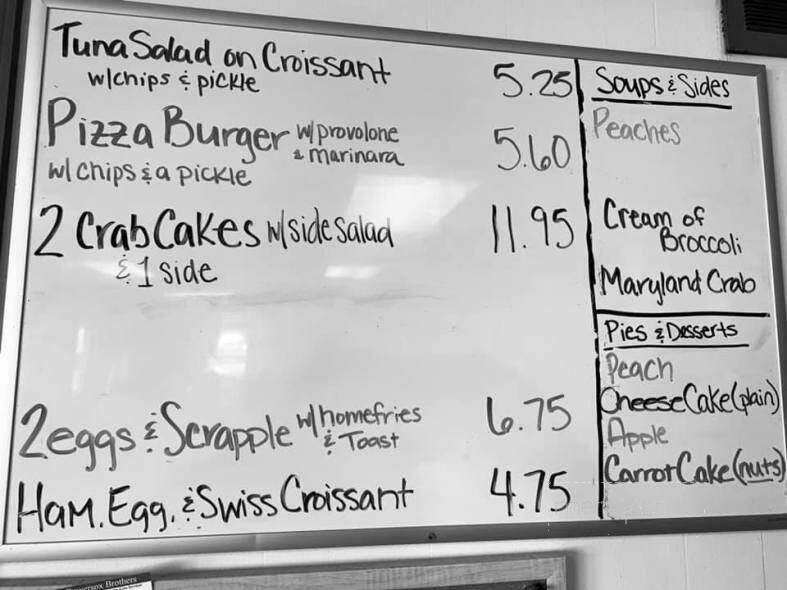 Tuna Salad on Croissant 5.25
w/chips & pickle
Pizza Burger w/provolone & marinara 5.60
w/ chips & a pickle
2 Crab Cakes w/side salad 11.95
& 1 side
2 eggs & Scrapple w/homefries & Toast 6.75
Ham, Egg, & Swiss Croissant 4.75
Soups & Sides
Peaches
Cream of
Broccoli
Maryland Crab
Pies & Desserts
Peach
CheeseCake (plain)
Apple
Carrot Cake (nuts)
Brothers